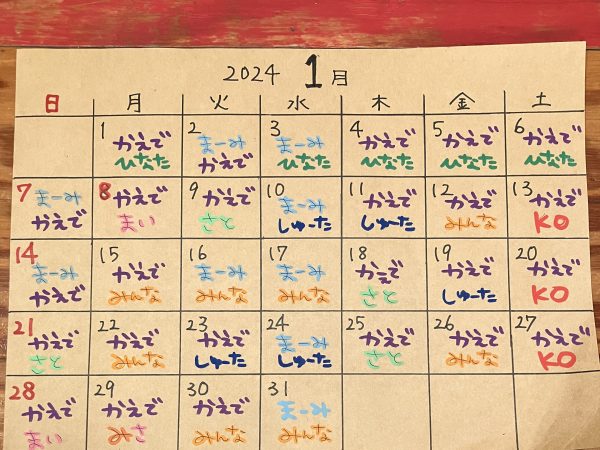 2024 1月
日 月 火 水 木 金 土
1 かえで ひなた
2 まーみ かえで
3 まーみ ひなた
4 かえで ひなた
5 かえで ひなた
6 かえで ひなた
7 まーみ かえで
8 かえで まい
9 かえで さと
10 まーみ しゅーた
11 かえで しゅーた
12 かえで みんな
13 かえで KO
14 まーみ かえで
15 かえで みんな
16 まーみ みんな
17 まーみ みんな
18 かえで さと
19 かえで しゅーた
20 かえで KO
21 かえで さと
22 かえで みんな
23 かえで しゅーた
24 まーみ しゅーた
25 かえで さと
26 かえで みんな
27 かえで KO
28 かえで まい
29 かえで みさ
30 かえで みんな
31 まーみ みんな